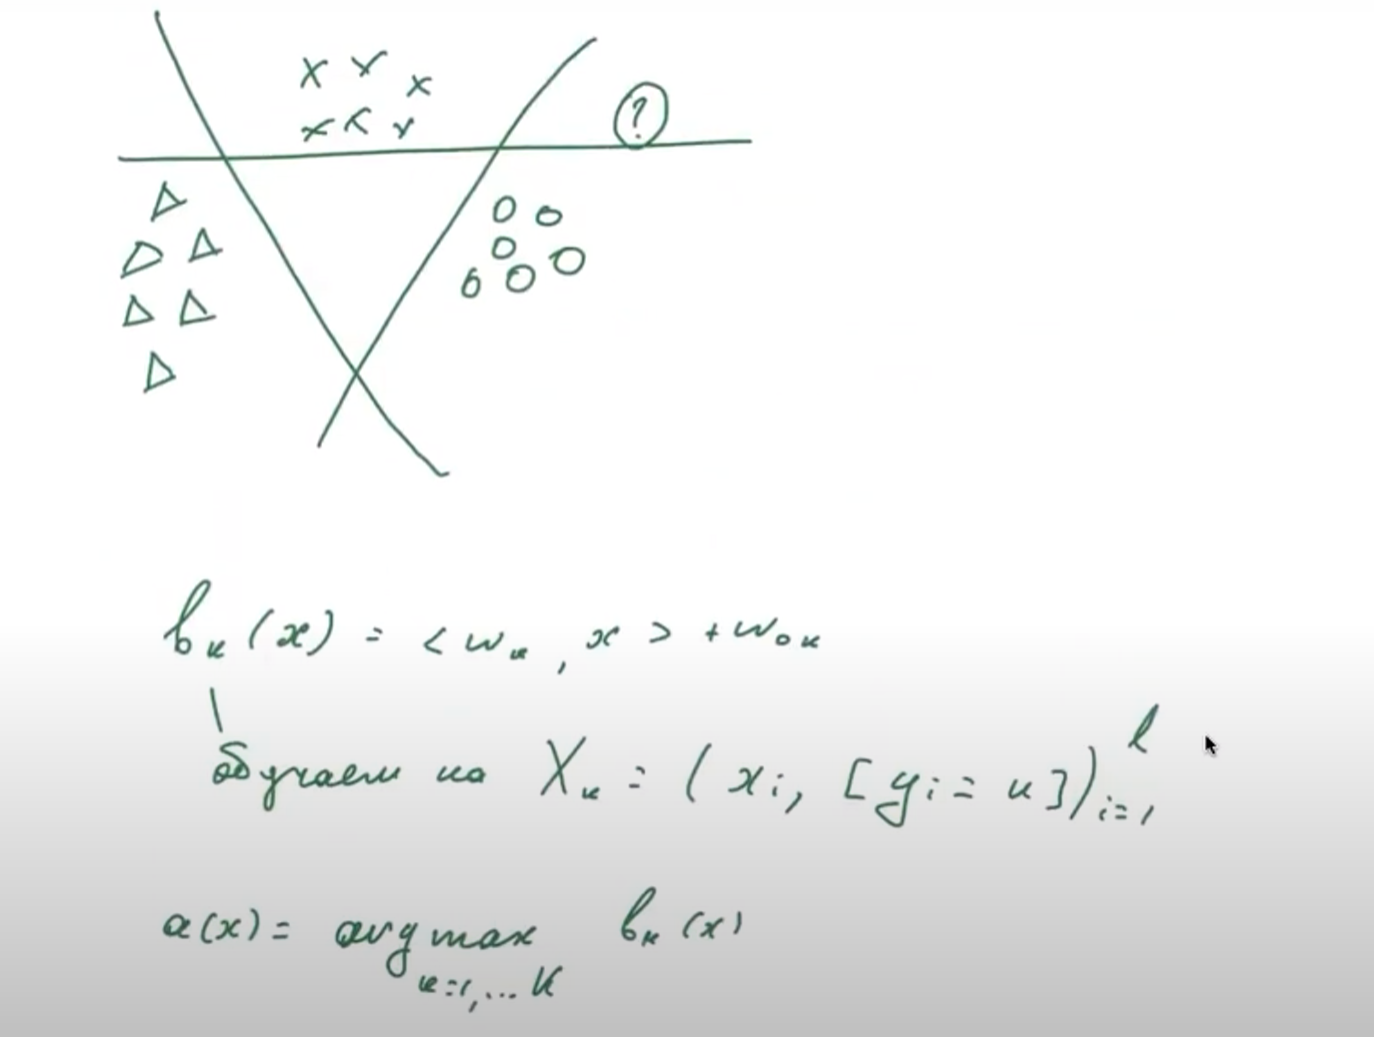 ?
b_k(x) = <w_k, x> + w_0k
обучаем на X_k = (x_i, [y_i = k])_{i=1}^ℓ
a(x) = argmax b_k(x)
k=1,...K